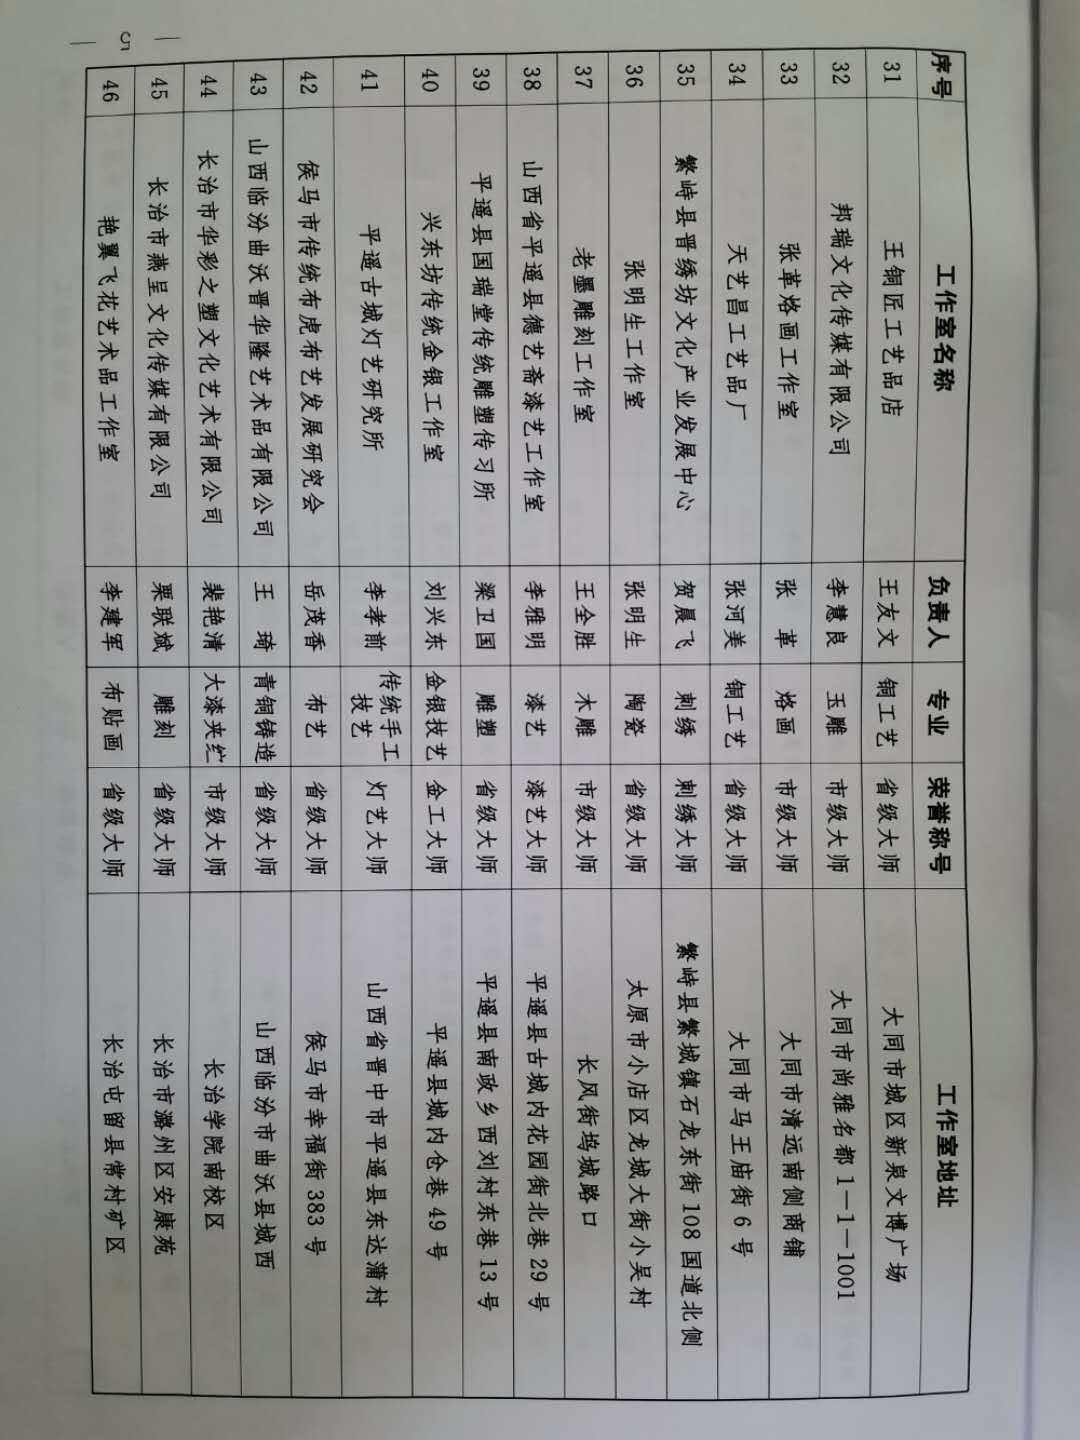 序号 工作室名称 负责人 专业 荣誉称号 工作室地址
31 王铜匠工艺品店 王友文 铜工艺 省级大师 大同市城区新泉文博广场
32 邦瑞文化传媒有限公司 李慧良 玉雕 市级大师 大同市尚雅名都1—1—1001
33 张革烙画工作室 张革 烙画 市级大师 大同市清远南侧商铺
34 天艺昌工艺品厂 张河美 铜工艺 省级大师 大同市马王庙街6号
35 繁峙县晋绣坊文化产业发展中心 贺晨飞 刺绣 刺绣大师 繁峙县繁城镇石龙东街108国道北侧
36 张明生工作室 张明生 陶瓷 省级大师 太原市小店区龙城大街小吴村
37 老墨雕刻工作室 王全胜 木雕 市级大师 长风街坞城路口
38 山西省平遥县德艺斋漆艺工作室 李雅明 漆艺 漆艺大师 平遥县古城内花园街北巷29号
39 平遥县国瑞堂传统雕塑传习所 梁卫国 雕塑 省级大师 平遥县南政乡西刘村东巷13号
40 兴东坊传统金银工作室 刘兴东 金银技艺 金工大师 平遥县城内仓巷49号
41 平遥古城灯艺研究所 李孝前 传统手工技艺 灯艺大师 山西省晋中市平遥县东达蒲村
42 侯马市传统布虎布艺发展研究会 岳茂香 布艺 省级大师 侯马市幸福街383号
43 山西临汾曲沃晋华隆艺术品有限公司 王琦 青铜铸造 省级大师 山西临汾市曲沃县城西
44 长治市华彩之塑文化艺术有限公司 裴艳清 大漆夹纻 市级大师 长治学院南校区
45 长治市燕呈文化传媒有限公司 栗联斌 雕刻 省级大师 长治市潞州区安康苑
46 艳翼飞花艺术品工作室 李建军 布贴画 省级大师 长治屯留县常村矿区
— 5 —